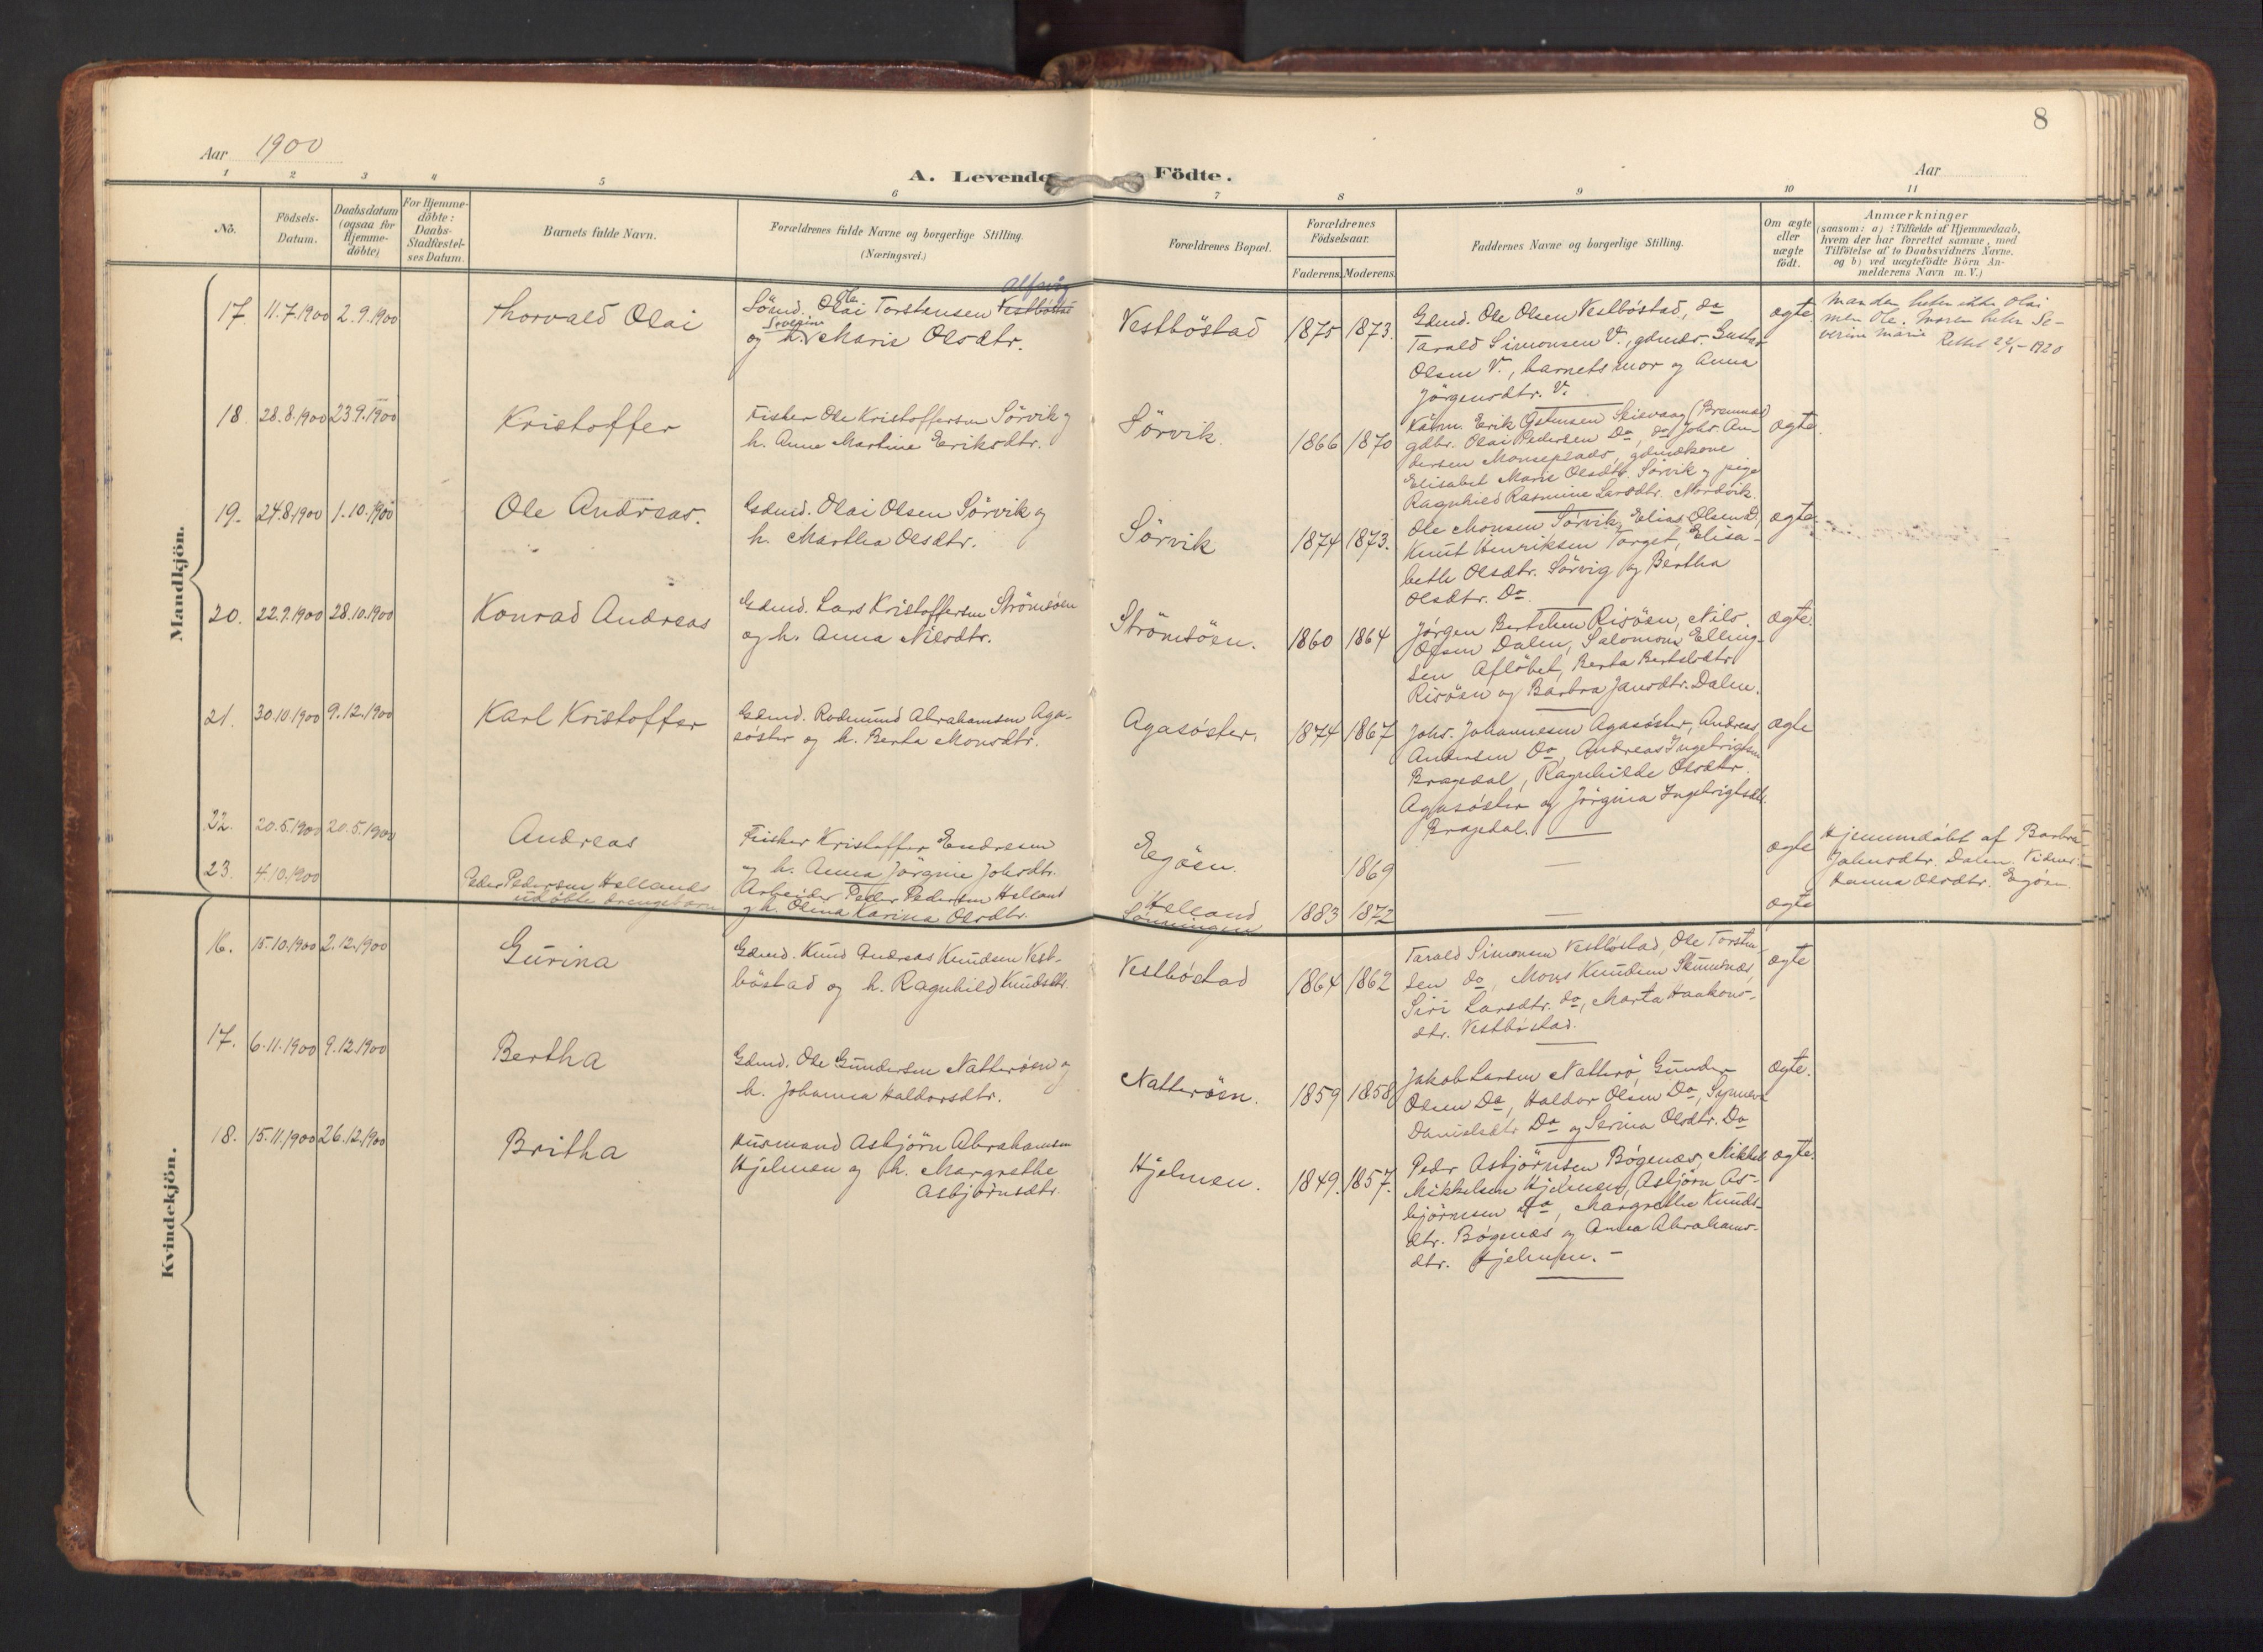 8
Aar 1900
Aar
A. Levende Födte.
1 2 3 4 5 6 7 8 9 10 11
No.
Födsels-
Datum.
Daabsdatum
(ogsaa for
Hjemme-
döbte)
For Hjemme-
döbte:
Daabs-
Stadfæstel-
ses Datum.
Barnets fulde Navn.
Forældrenes fulde Navne og borgerlige Stilling.
(Næringsvei.)
Forældrenes Bopæl.
Forældrenes
Födselsaar.
Faderens. Moderens.
Faddernes Navne og borgerlige Stilling.
Om ægte
eller
uægte
födt.
Anmærkninger
(saasom: a) i Tilfælde af Hjemmedaab,
hvem der har forrettet samme, med
Tilföielse af to Daabsvidners Navne.
og b) ved uægtefödte Börn An-
melderens Navn m. V.)
Mandkjön.
17. 11.7.1900 2.9.1900
Thorvald Olai
Alfsvåg
Ole
Sömd. Olai Torstensen Vestböstad
Severine
og h. Marie Olsdtr.
Vestböstad 1875 1873.
Gdmd. Ole Olsen Vestböstad, do
Tarald Simonsen V., gdmdr. Gustav
Olsen V., barnets mor og Anna
Jörgensdtr. V.
ægte
Manden heter ikke Olai
men Ole. Moren heter Se-
verine Marie
Rettet 24/1-1920
18 28.8.1900 23.9.1900
Kristoffer
Fisker Ole Kristoffersen Sörvik og
h. Anne Martine Eriksdtr.
Sörvik. 1866 1870
Kårm. Erik Östensen Skisvaag (Bremnæs)
gdbr. Olai Pedersen Do, do Johs. An-
dersen Monseplads, gdmdkone
Elisabet Marie Olsdtr. Sörvik og pige
Ragnhild Rasmine Larsdtr. Nordvik.
ægte.
19. 24.8.1900 1.10.1900
Ole Andreas.
Gdmd. Olai Olsen Sörvik og
h. Martha Olsdtr.
Sörvik 1874 1873.
Ole Monsen Sörvik, Elias Olsen D,
Knut Henriksen Torget, Elisa-
beth Olsdtr. Sörvig og Bertha
Olsdtr. Do.
ægte
20. 22.9.1900 28.10.1900
Konrad Andreas
Gdmd. Lars Kristoffersen Strömsöen
og h. Anna Nilsdtr.
Strömsöen. 1860 1864
Jörgen Bertelsen Risöen, Nils
Olsen Dalen, Salomon Elling-
sen Aflöbet, Berta Bertelsdtr
Risöen og Barbra Jansdtr. Dalen.
ægte.
21. 30.10.1900 9.12.1900
Karl Kristoffer
Gdmd. Rodmund Abrahamsen Aga-
söster og h. Berta Monsdtr.
Agasöster. 1874 1867
Johs. Johannesen Agasöster, Andreas
Andersen Do, Andreas Ingebrigtsen
Bragedal, Ragnhilde Olsdtr.
Agasöster og Jörgina Ingebrigtsdtr.
Bragedal.
ægte
22. 20.5.1900 20.5.1900
Andreas
Fisker Kristoffer Endresen
og h. Anna Jörgine Johsdtr.
Egöen. 1869
—
ægte
Hjemmedöbt af Barbra
Johnsdtr. Dalen. Vidner:
Hanna Olsdtr. Egöen.
23. 4.10.1900
Peder Pedersen Hellands
udöbte drengebarn
Arbeider Peder Pedersen Helland
og h. Olina Karina Olsdtr.
Helland
1883 1872
—
ægte
Kvindekjön.
16. 15.10.1900 2.12.1900
Gurina
Gdmd. Knud Andreas Knudsen Vest-
böstad og h. Ragnhild Knudsdtr.
Vestböstad 1864 1862
Tarald Simonsen Vestböstad, Ole Torsten-
sen do, Mons Knudsen Stumsnæs,
Siri Larsdtr. do, Marta Haakons-
dtr. Vestböstad.
ægte
17. 6.11.1900 9.12.1900
Bertha
Gdmd. Ole Gundersen Natteröen og
h. Johanna Haldorsdtr.
Natteröen. 1859 1858
Jakob Larsen Natterö, Gunder
Olsen Do, Haldor Olsen Do, Synneva
Danielsdtr Do og Serina Olsdtr. Do
ægte.
18. 15.11.1900 26.12.1900
Britha
Husmand Asbjörn Abrahamsen
Hjelmen og h. Margrethe
Asbjörnsdtr.
Hjelmen. 1849. 1857.
Peder Asbjörnsen Bögenæs, Mikkel
Mikkelsen Hjelmen, Asbjörn As-
björnsen do, Margrethe Knuds-
dtr. Bögenæs og Anna Abrahams-
dtr. Hjelmen. —
ægte.